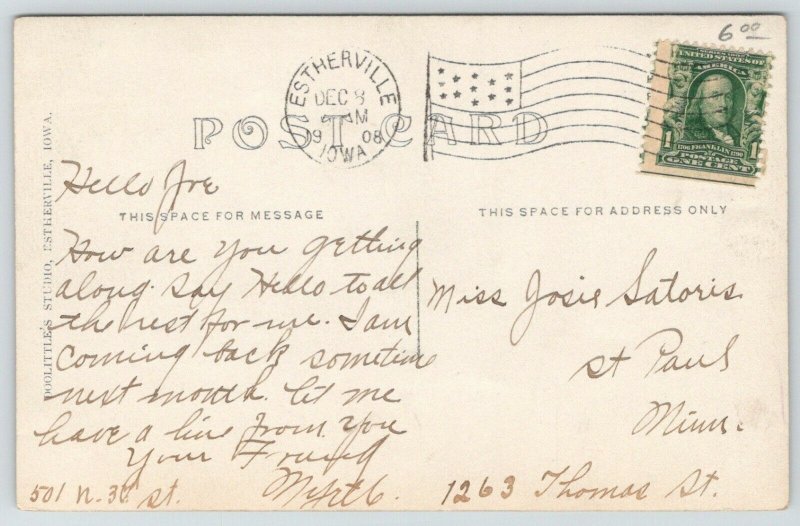 6 00
UNITED STATES OF
AMERICA
1 1706 FRANKLIN 1790 1
POSTAGE
ONE CENT
ESTHERVILLE
DEC 8
M
19 08
IOWA
POST CARD
DOOLITTLE'S STUDIO, ESTHERVILLE, IOWA.
THIS SPACE FOR MESSAGE
THIS SPACE FOR ADDRESS ONLY
Hello Joe
How are you getting
along. Say Hello to all
the rest for me. I am
coming back sometime
next month. let me
have a line from you
Your Friend
501 N. 3rd st.
Miss Josie Satoris
St Paul
Minn.
1263 Thomas St.